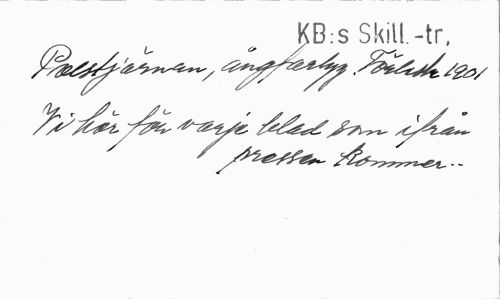 KB:s Skill.-tr,
Polstjärnan, ångfartyg. 1901
Vi här för varje blad som ifrån
pressen kommer..